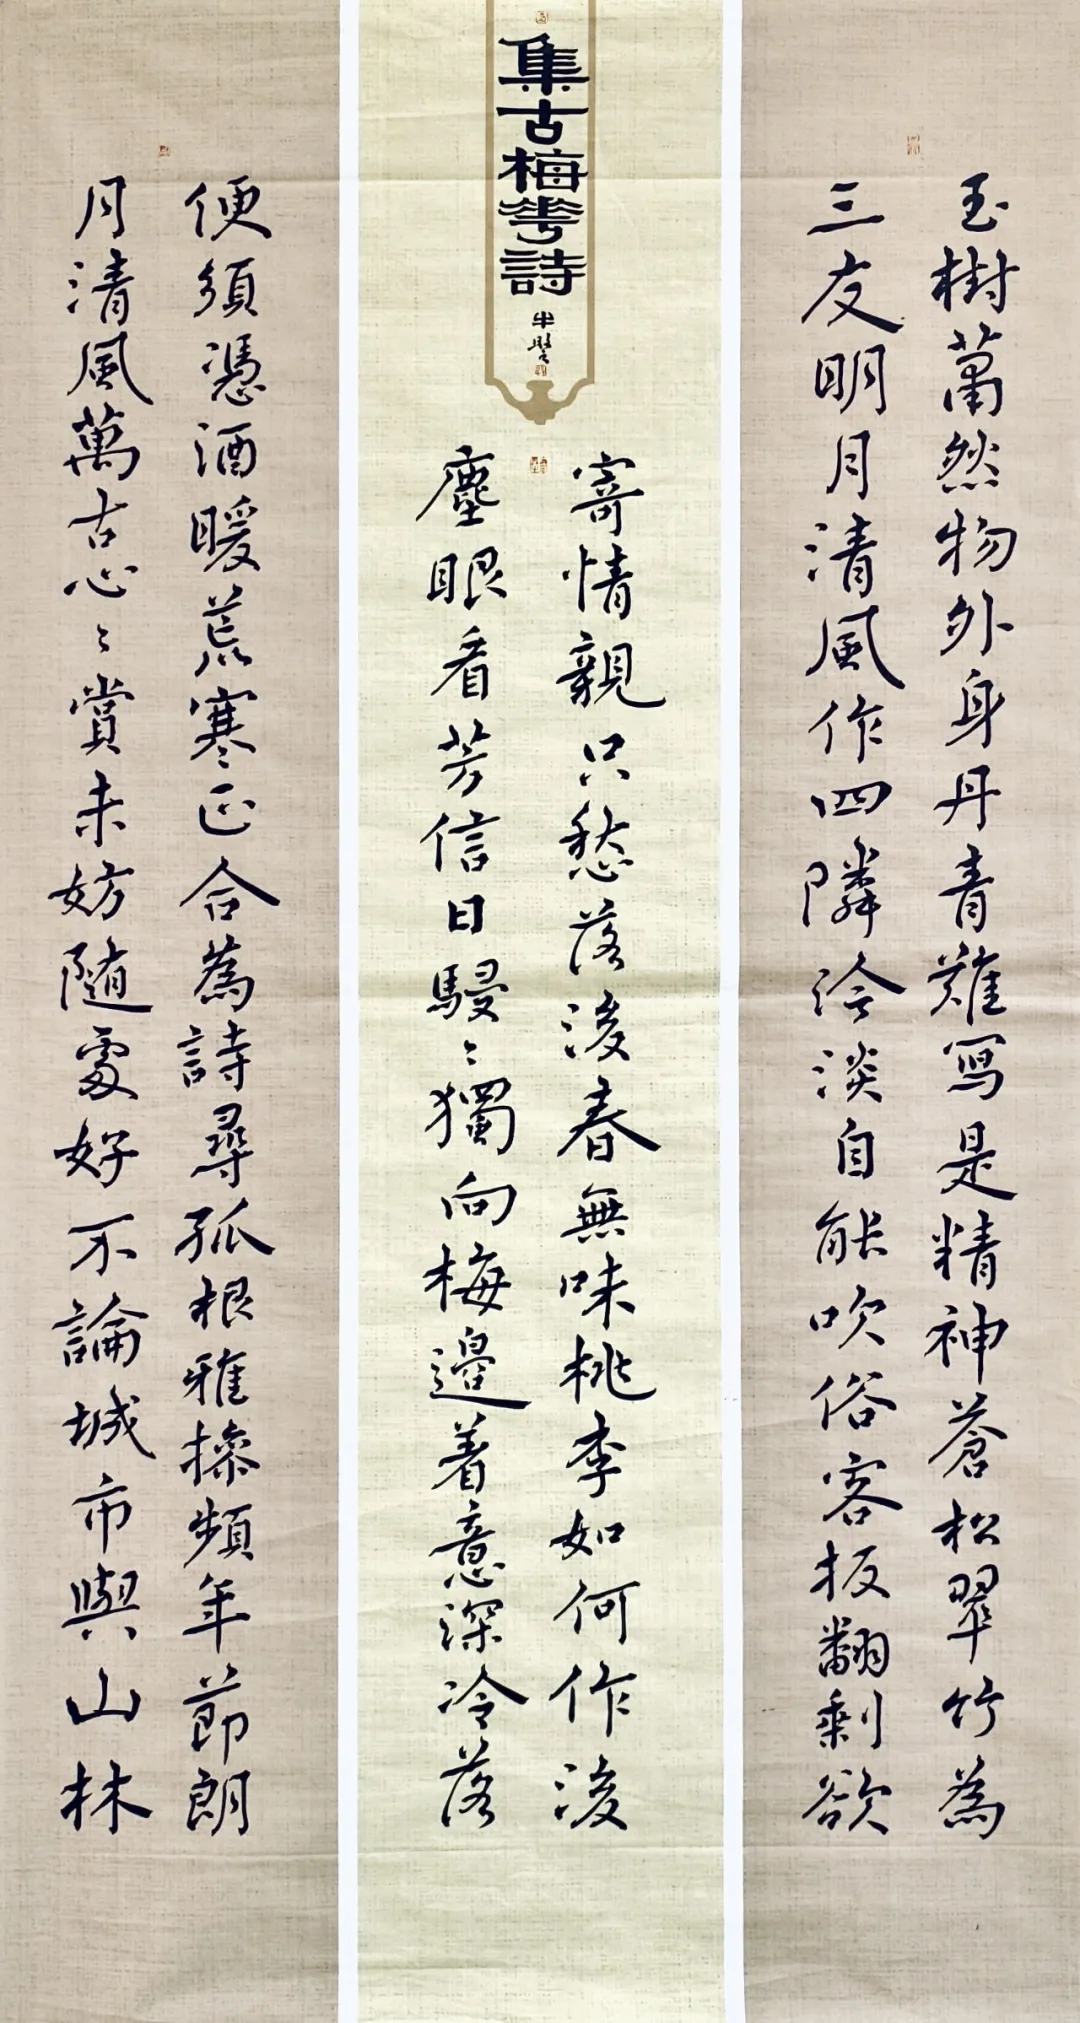 集古梅華詩
玉樹蕭然物外身丹青難寫是精神蒼松翠竹為
三友明月清風作四隣冷淡自能吹俗客扳翻剩欲
寄情親只愁落後春無味桃李如何作後
塵眼看芳信日駸々獨向梅邊着意深冷落
便須憑酒暖荒寒正合為詩尋孤根雅操頻年節朗
月清風萬古心々賞未妨隨處好不論城市與山林